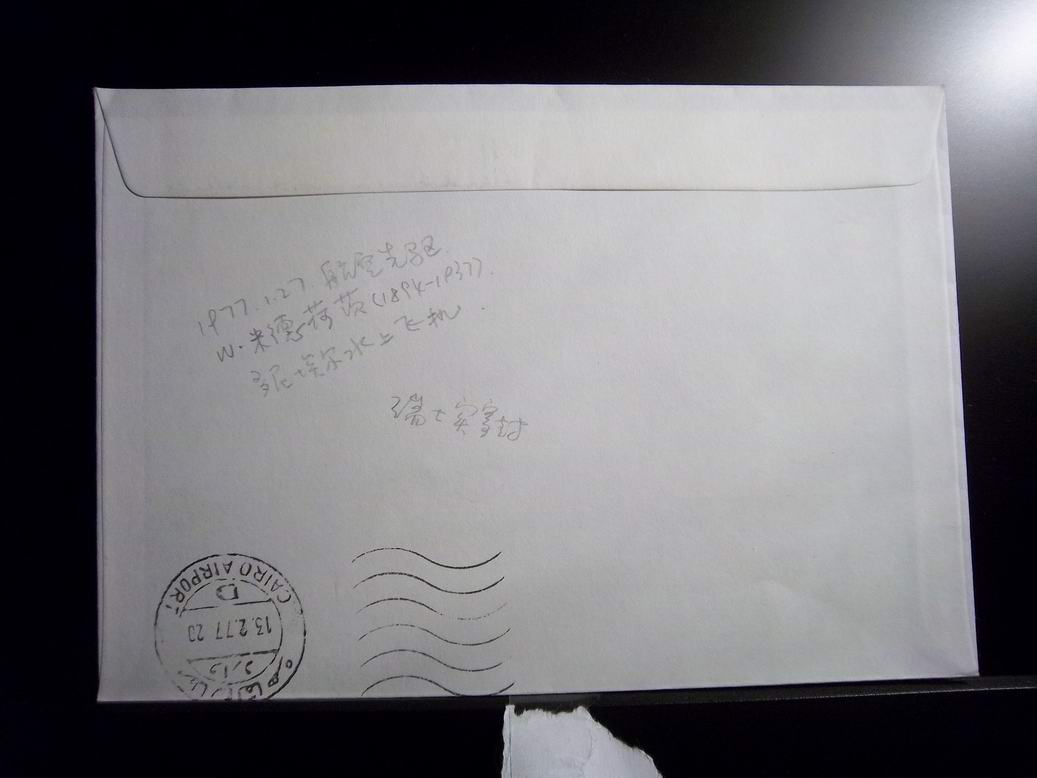 1977.1.27. 航空先驱
W. 米德荷茨(1894-1937).
多尼埃尔水上飞机.
瑞士实寄封
CAIRO AIRPORT
D
13.2.77 20
وارد